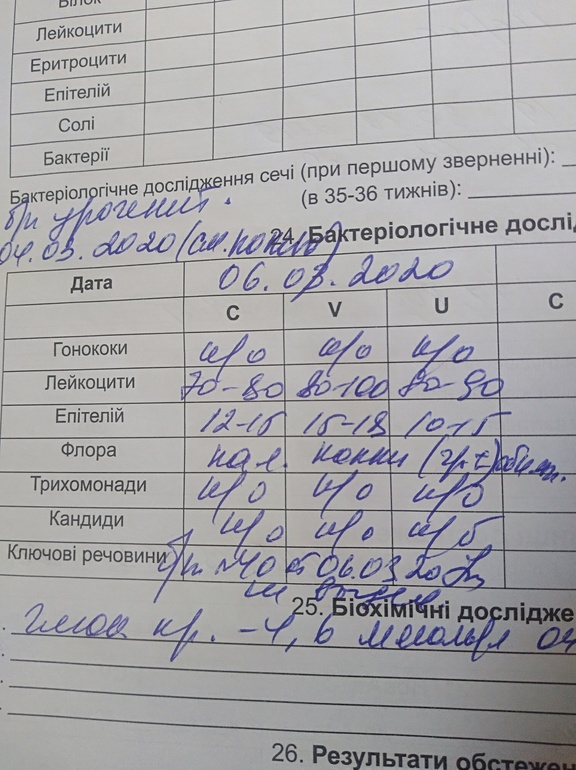 Білок
Лейкоцити
Еритроцити
Епітелій
Солі
Бактерії
Бактеріологічне дослідження сечі (при першому зверненні):
(в 35-36 тижнів):
04.03.2020 (см.
24. Бактеріологічне дослі
Дата 06.03.2020
C V U C
Гонококи н/о н/о н/о
Лейкоцити 70-80 80-100 80-90
Епітелій 12-15 15-18 10-15
Флора пал. кокки (гр±)
Трихомонади н/о н/о н/о
Кандиди н/о н/о
Ключові речовини 06.03.20
25. Біохімічні дослідже
кр. -4,6 04
26. Результати обстежен